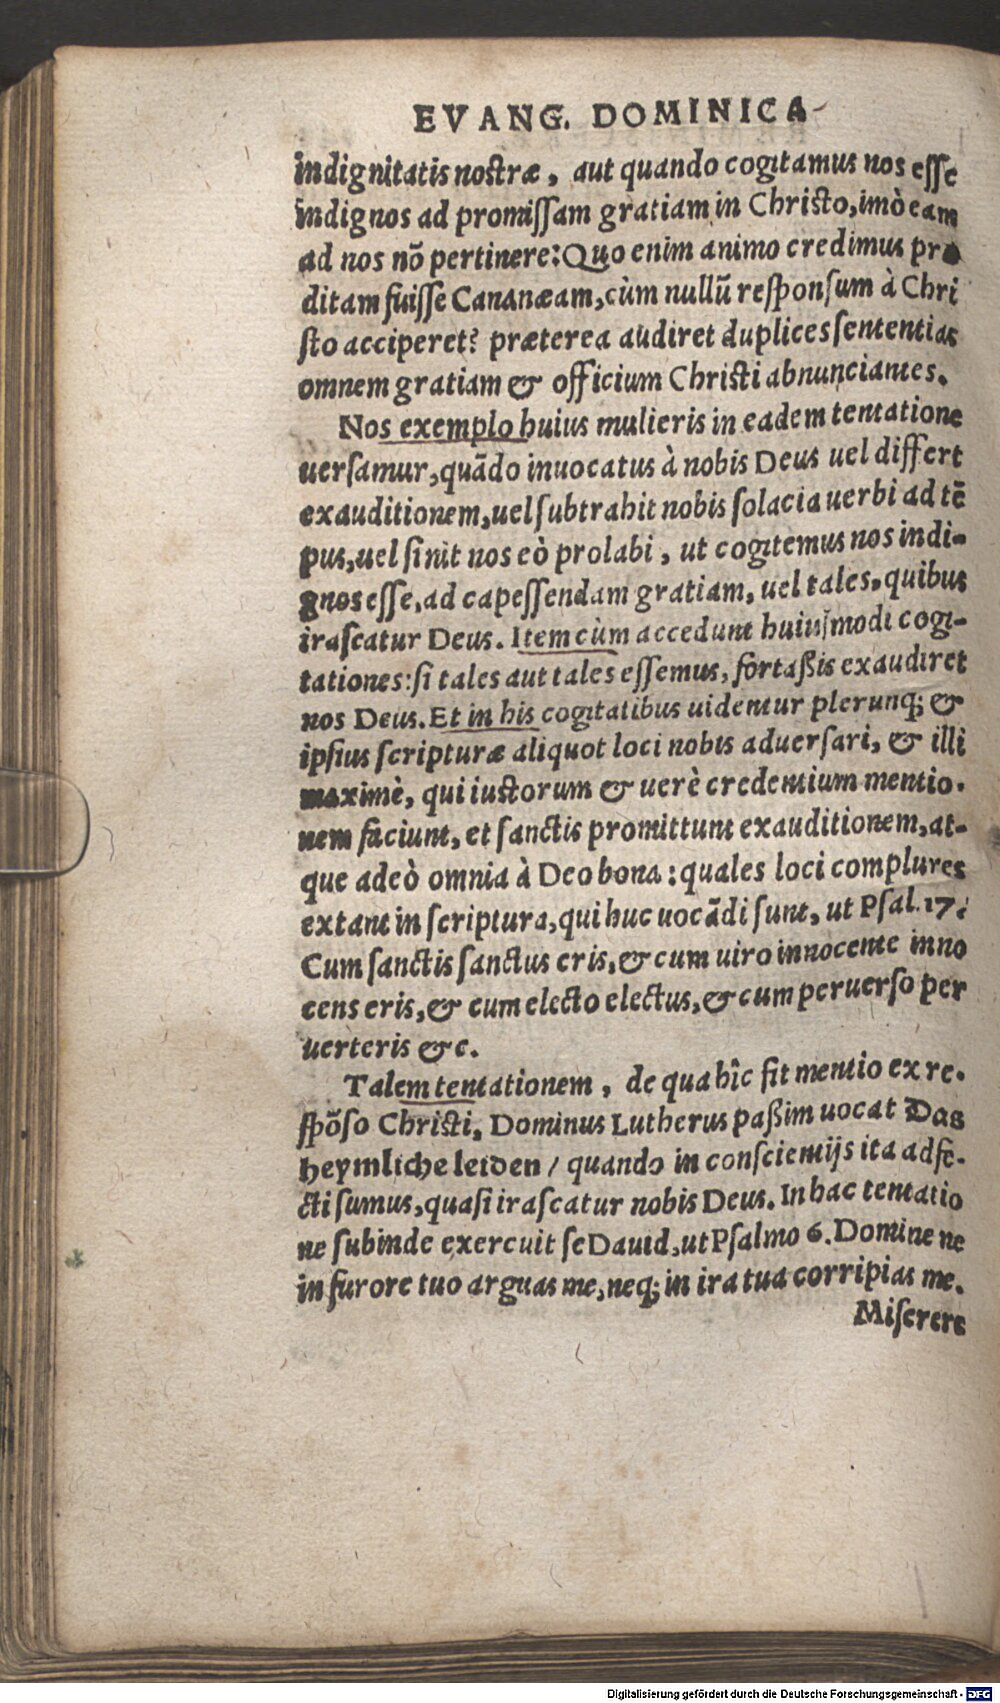 EVANG. DOMINICA
indignitatis nostræ, aut quando cogitamus nos esse
indignos ad promissam gratiam in Christo, imò eam
ad nos nõ pertinere: Quo enim animo credimus præ
ditam fuisse Cananæam, cùm nullũ responsum à Chri
sto acciperet? præterea audiret duplices sententias
omnem gratiam & officium Christi abnunciantes.
Nos exemplo huius mulieris in eadem tentatione
uersamur, quãdo inuocatus à nobis Deus uel differt
exauditionem, uel subtrahit nobis solacia uerbi ad tẽ
pus, uel sinit nos eò prolabi, ut cogitemus nos indi-
gnos esse, ad capessendam gratiam, uel tales, quibus
irascatur Deus. Item cùm accedunt huiusmodi cogi-
tationes: si tales aut tales essemus, fortaßis exaudiret
nos Deus. Et in his cogitatibus uidentur plerunq; &
ipsius scripturæ aliquot loci nobis aduersari, & illi
maximè, qui iustorum & uerè credentium mentio-
nem faciunt, et sanctis promittunt exauditionem, at-
que adeò omnia à Deo bona: quales loci complures
extant in scriptura, qui huc uocãdi sunt, ut Psal. 17.
Cum sanctis sanctus eris, & cum uiro innocente inno
cens eris, & cum electo electus, & cum peruerso per
uerteris &c.
Talem tentationem, de qua hîc fit mentio ex re-
spõso Christi, Dominus Lutherus paßim uocat Das
heymliche leiden / quando in conscientijs ita adfe-
cti sumus, quasi irascatur nobis Deus. In hac tentatio
ne subinde exercuit se Dauid, ut Psalmo 6. Domine ne
in furore tuo arguas me, neq; in ira tua corripias me.
Miserere
Digitalisierung gefördert durch die Deutsche Forschungsgemeinschaft - DFG